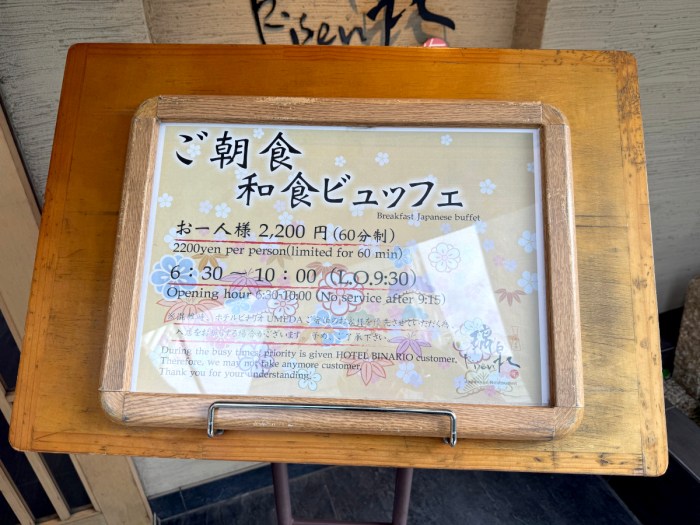 Risen
ご朝食
和食ビュッフェ
Breakfast Japanese buffet
お一人様 2,200 円(60分制)
2200yen per person(limited for 60 min)
6：30～10：00 (L.O.9:30)
Opening hour 6:30-10:00 (No service after 9:15)
ホテルビナリオ UMEDA
During the busy times, priority is given HOTEL BINARIO customer.
Therefore, we may not take anymore customer.
Thank you for your understanding.